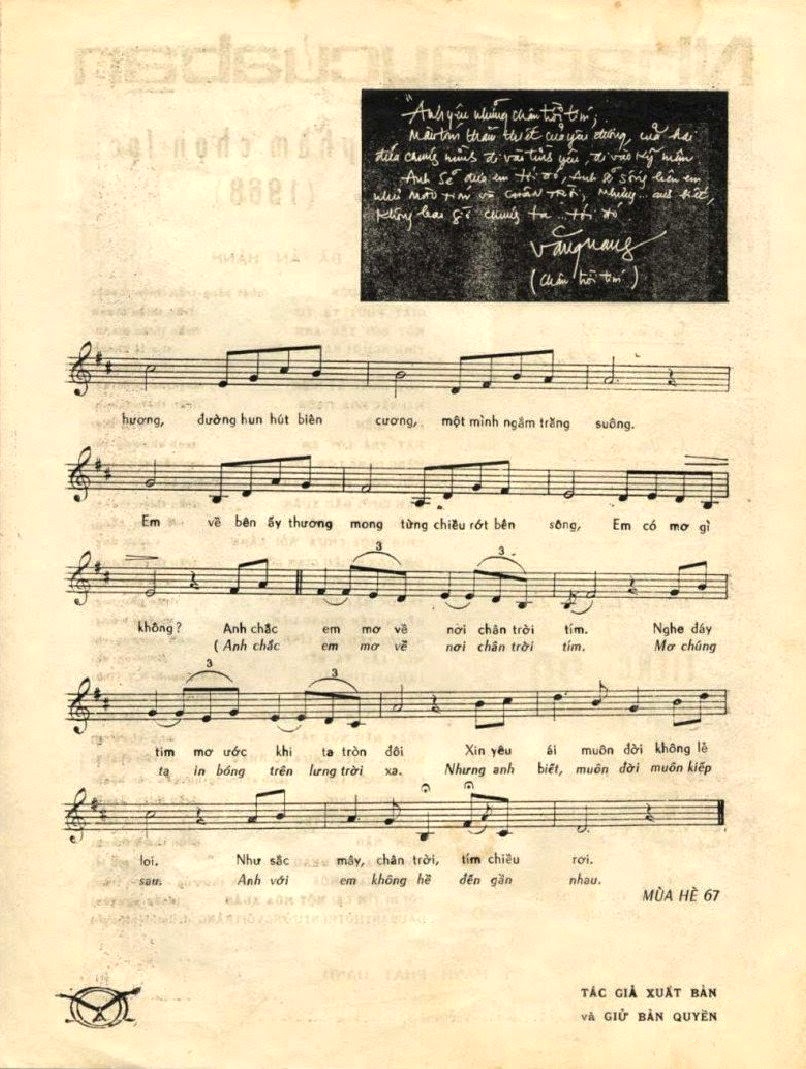 "Anh yêu những chân trời tím,
màu tím thân thiết của yêu đương, của hai
đứa chúng mình đi vào tình yêu, đi vào kỷ niệm
Anh sẽ đưa em tới đó, Anh sẽ sống bên em
như màu tím và chân trời, nhưng... anh biết,
không bao giờ chúng ta.. tới đó
Văn Quang
(Chân trời tím)
hương, đường hun hút biên cương, một mình ngắm trăng suông.
Em về bên ấy thương mong từng chiều rớt bên sông, Em có mơ gì
3 3
không? Anh chắc em mơ về nơi chân trời tím. Nghe đáy
(Anh chắc em mơ về nơi chân trời tím. Mơ chúng
3 3
tim mơ ước khi ta tròn đôi Xin yêu ái muôn đời không lẻ
ta in bóng trên lưng trời xa. Nhưng anh biết, muôn đời muôn kiếp
loi. Như sắc mây, chân trời, tím chiều rơi.
sau. Anh với em không hề đến gần nhau.
MÙA HÈ 67
TÁC GIẢ XUẤT BẢN
và GIỮ BẢN QUYỀN